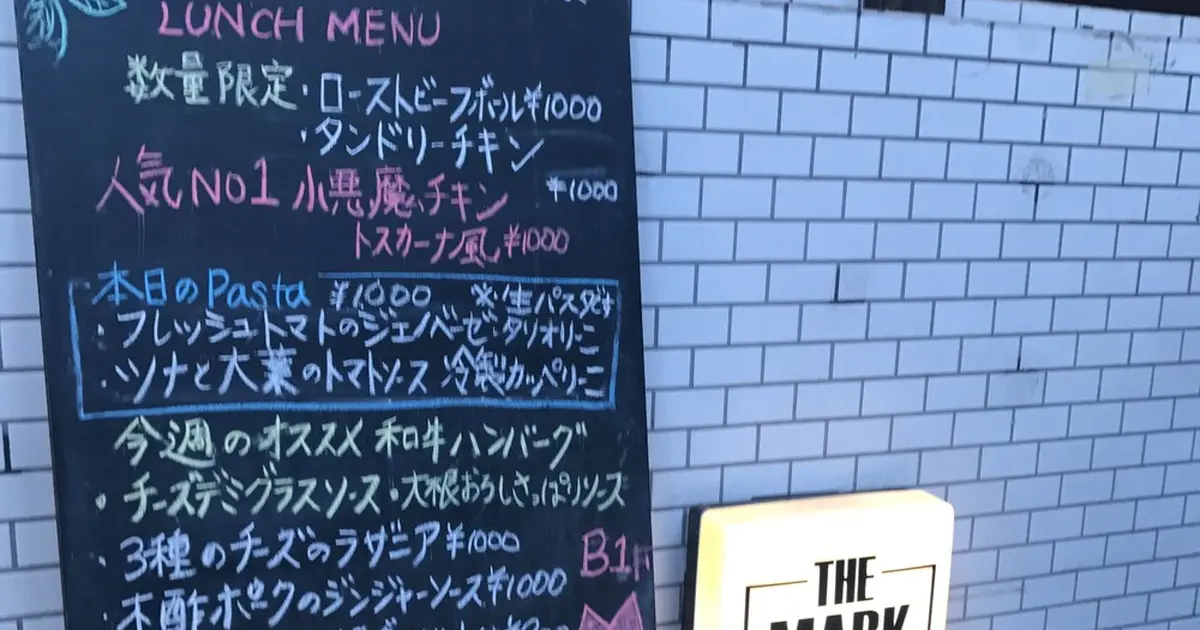 LUNCH MENU
数量限定・ローストビーフボール¥1000
・タンドリーチキン
¥1000
人気NO1 小悪魔チキン
トスカーナ風 ¥1000
本日のPasta ¥1000 ※生パスタです
・フレッシュトマトのジェノベーゼ・タリオリーニ
・ツナと大葉のトマトソース 冷製カッペリーニ
今週のオススメ 和牛ハンバーグ
・チーズデミグラスソース・大根おろしさっぱりソース
・3種のチーズのラザニア ¥1000
B1F
・木酢ポークのジンジャーソース ¥1000
THE
MARK